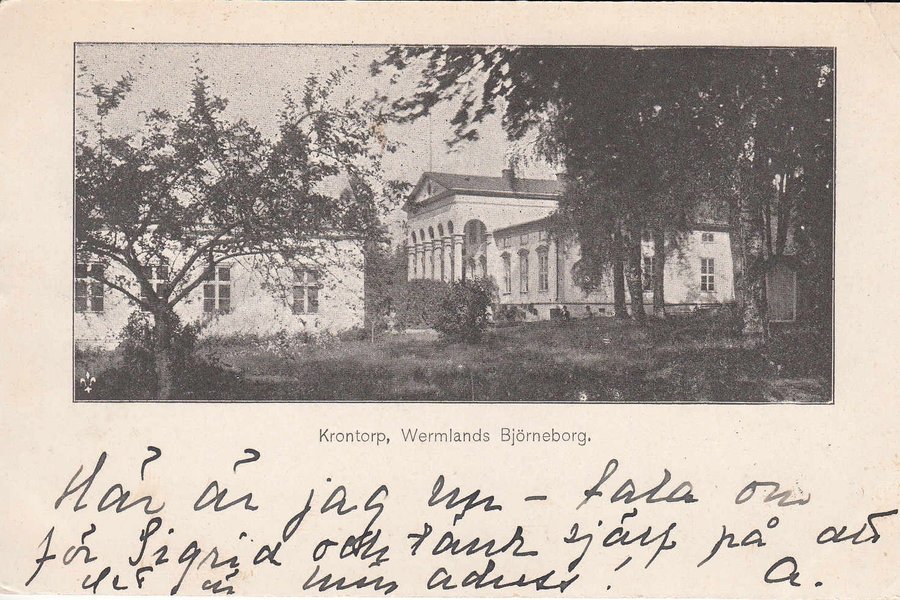 Krontorp, Wermlands Björneborg.
Här är jag nu – tala om
för Sigrid och tänk själf på att
det är min adress! A.